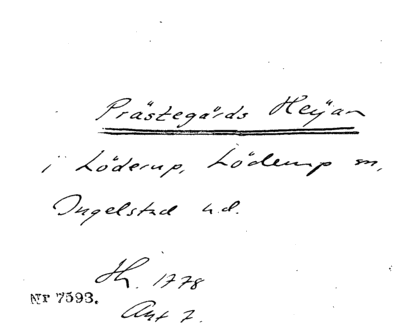 Prästegårds Heÿan
i Löderup, Löderup sn,
Ingelstad h.d.
Jh. 1778
Nr 7593.
Ant 7.